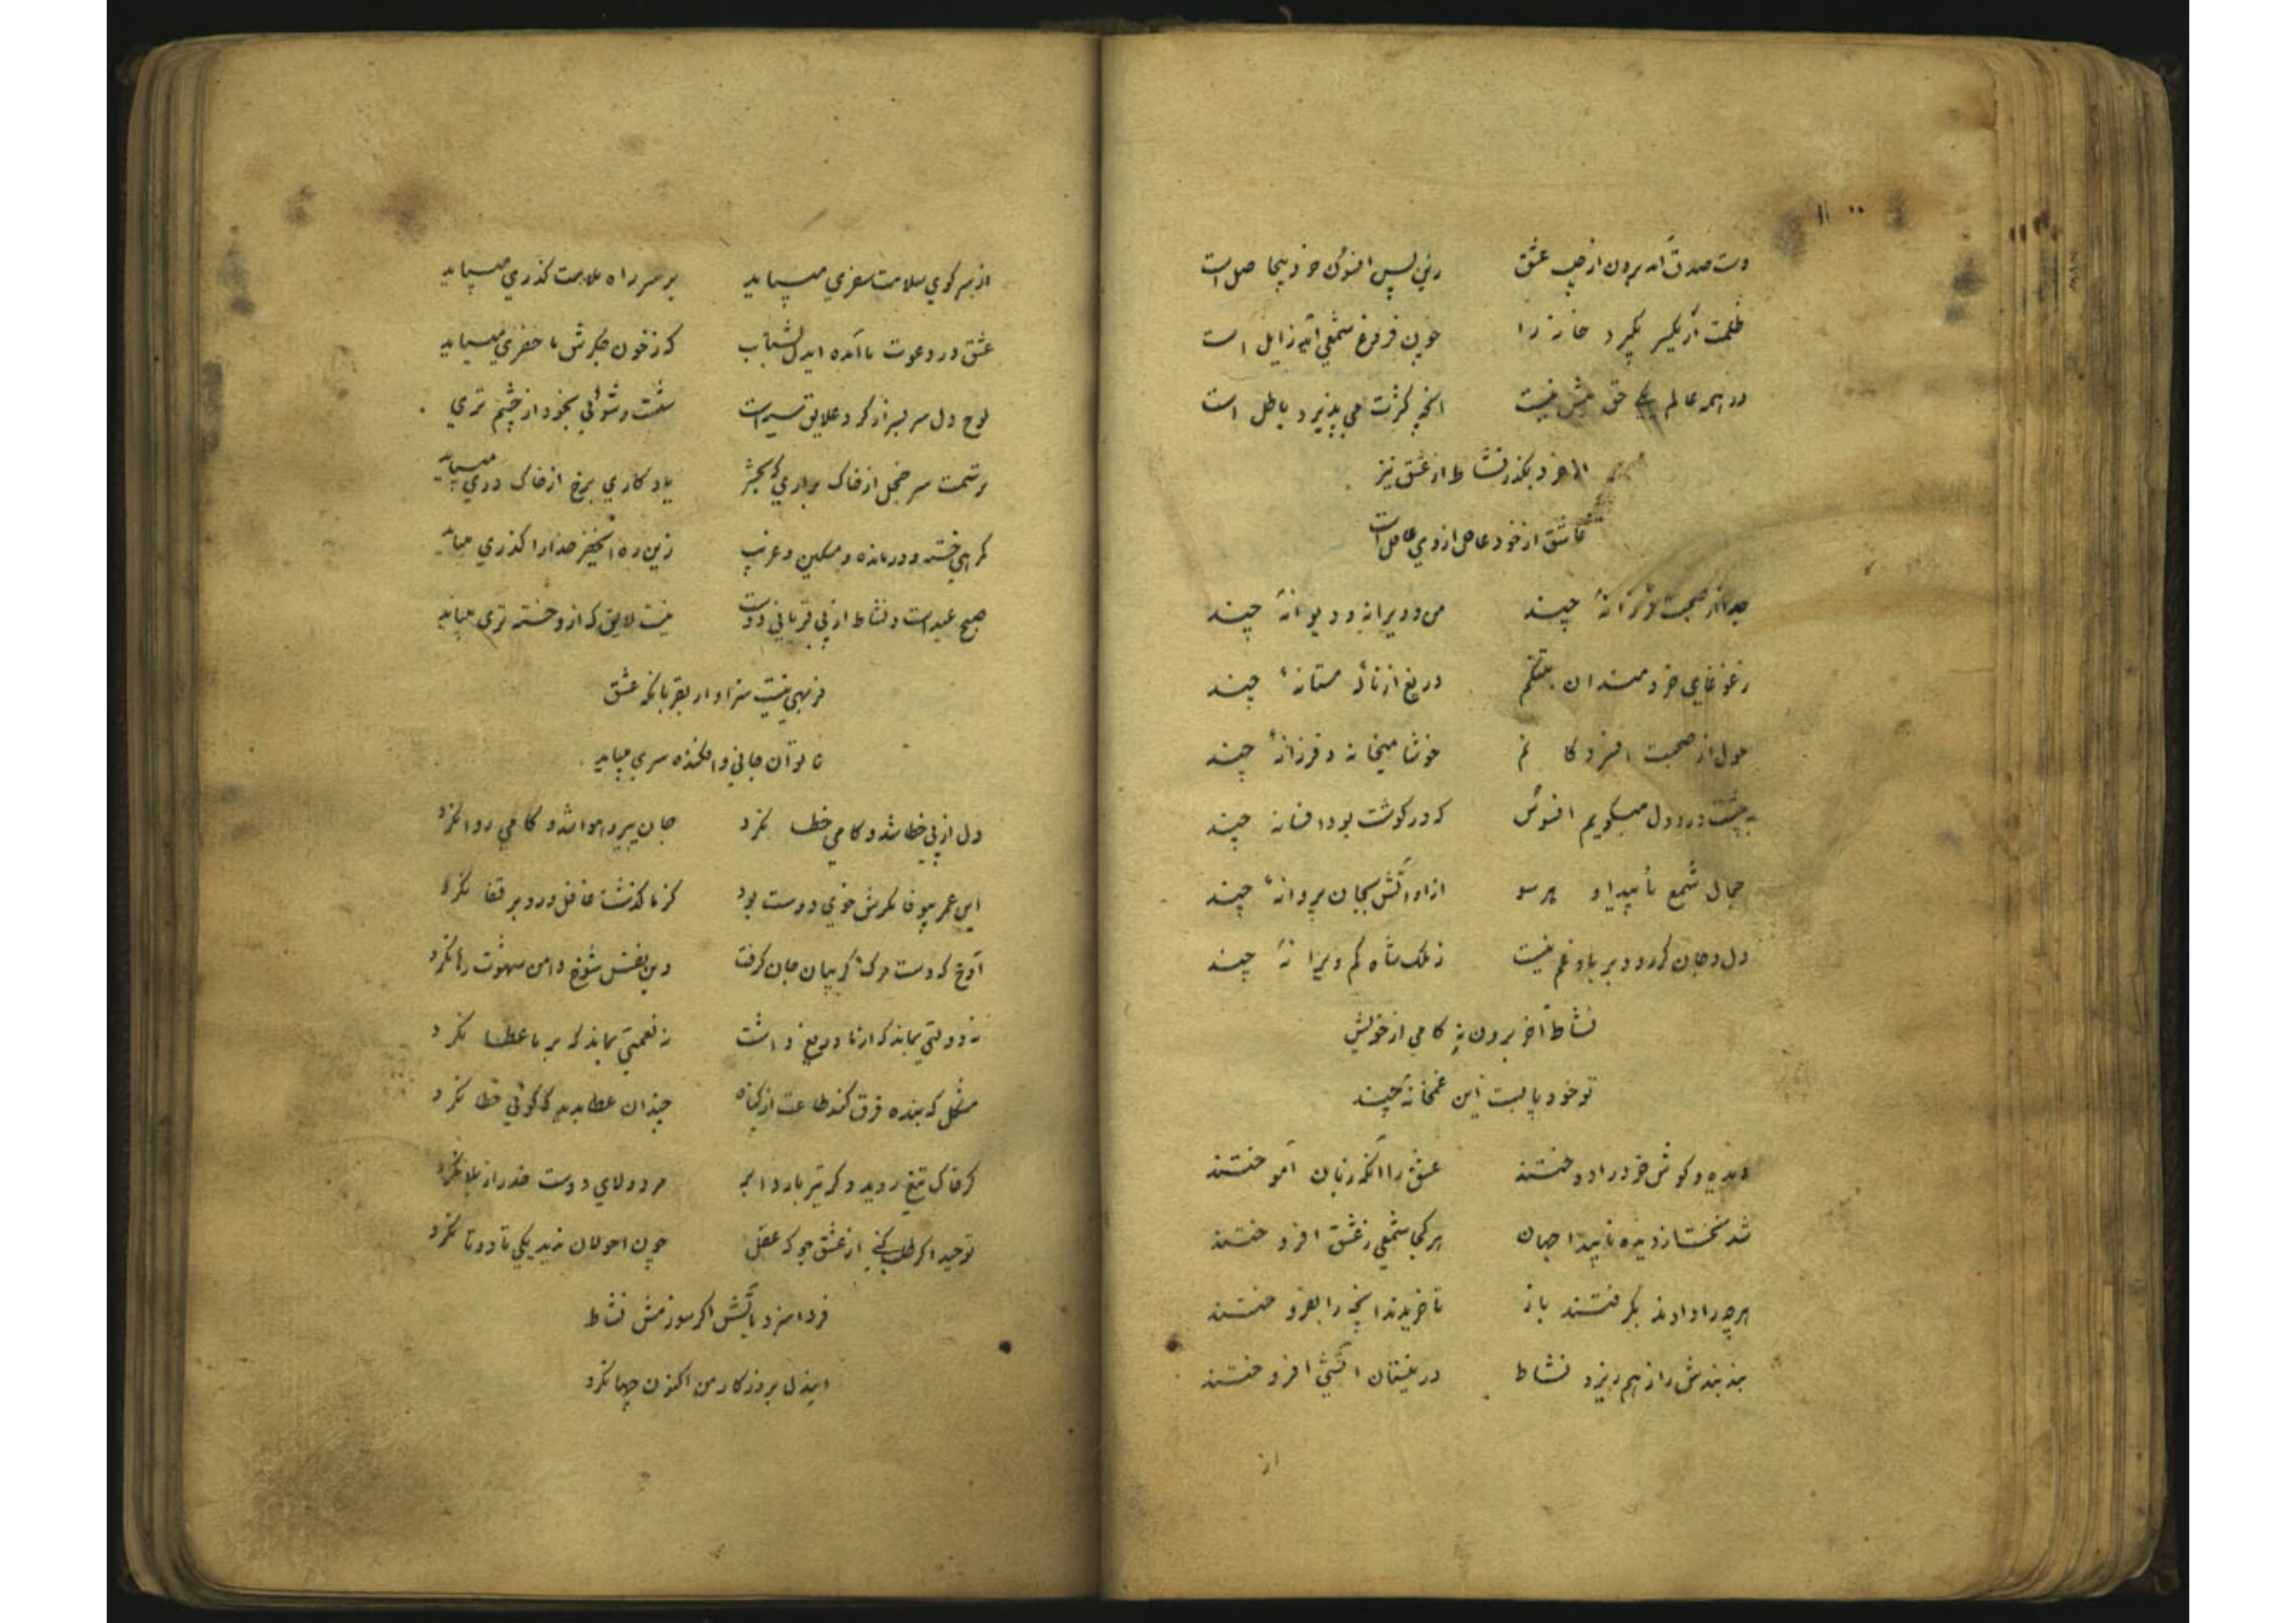 دست صدق آمد برون از جیب عشق    زین پس افسون خرد بیحاصل است
ظلمت ار یکسر بگیرد خانه را    چون فروغ شمعی آید زایل است
در همه عالم یکی حق بیش نیست    آنچه کثرت می پذیرد باطل است
از خرد بگذر نشاط از عشق نیز
عاشق از خود غافل از وی غافل است
جدا از صحبت فرزانهٔ چند    من و ویرانه و دیوانهٔ چند
ز غوغای خردمندان بتنگم    دریغ از نالهٔ مستانهٔ چند
ملول از صحبت افسردگانم    خوشا میخانه و فرزانهٔ چند
به پیشت درد دل میگویم افسوس    که در گوشت بود افسانهٔ چند
جمال شمع ناپیدا و هر سو    از او آتش بجان پروانهٔ چند
دل و جان گر رود بر باد غم نیست    ز ملک شاه کم ویرانهٔ چند
نشاط آخر برون نه گامی از خویش
تو خود پابست این غمخانهٔ چند
دیده و گوش خرد را دوختند    عشق را آنگه زبان آموختند
شد نخست از دیده ناپیدا جهان    هر کجا شمعی ز عشق افروختند
هر چه را دادند بگرفتند باز    تا خریدند آنچه را بفروختند
بند بندش را ز هم ریزد نشاط    در نیستان آتشی افروختند
از
از سر کوی سلامت سفری میباید    بر سر راه ملامت گذری میباید
عشق در دعوت ما آمده ایدل بشتاب    که ز خون جگرش ماحضری میباید
لوح دل سر بسر از گرد علایق سیه است    شست و شوئی بخود از چشم تری
شرمت سر خجل از خاک برآری که بحشر    یادگاری برخ از خاک دری میباید
گمرهی خسته و درمانده و مسکین و غریب    زین ره ای خضر خدا را گذری میباید
صبح عید است و نشاط از پی قربانی دوست    نیست لایق که از و خسته تری میباید
فربهی نیست سزاوار بقربانگه عشق
ناتوان جانی و افکنده سری میباید
دل از پی خطا شد و کامی خطا نکرد    جان پیرو هوا شد و کامی روا نکرد
این عمر بیوفا مگرش خوی دوست بود    کز ما گذشت غافل و رو بر قفا نکرد
آوخ که دست مرگ گریبان جان گرفت    وین نفس شوخ دامن شهوت رها نکرد
نه دولتی بماند که از ما دریغ داشت    نه نعمتی بماند که بر ما عطا نکرد
مشکل که بنده فرق کند طاعت از گناه    چندان عطا بدید که گوئی خطا نکرد
گر خاک تیغ روید و گر تیر بارد ابر    مرد ولای دوست حذر از بلا نکرد
توحید اگر طلب کنی از عشق جو که عقل    چون احولان ندید یکی تا دو تا نکرد
فردا سزد بآتش اگر سوزمش نشاط
ایندل بروزگار من اکنون چها نکرد